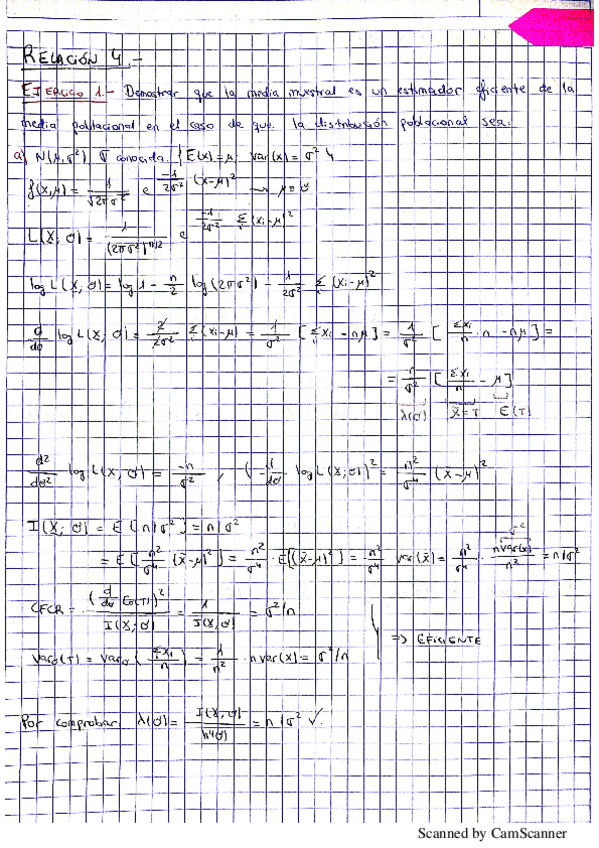 RELACIÓN 4.-
EJERCICIO 1.- Demostrar que la media muestral es un estimador eficiente de la
media poblacional en el caso de que la distribución poblacional sea:
a) N(μ,σ²) σ conocida. {E(X)=μ; var(X)=σ²}
f(x,μ) = 1/√2πσ² e^{-1/2σ² (x-μ)²} → μ ≡ θ
L(X; θ) = 1/(2πσ²)^{n/2} e^{-1/2σ² Σi (xi-μ)²}
log L(X, θ) = log 1 - n/2 log(2πσ²) - 1/2σ² Σi (xi-μ)²
d/dθ log L(X; θ) = 2/2σ² Σi (xi-μ) = 1/σ² [Σi xi - nμ] = 1/σ² [Σxi/n · n - nμ] =
= n/σ² [Σxi/n - μ]
λ(θ) X̄=T E(T)
d²/dθ² log L(X, θ) = -n/σ² , (d/dθ log L(X;θ))² = n²/σ⁴ (X̄-μ)²
I(X; θ) = E[n/σ²] = n/σ²
= E[n²/σ⁴ (X̄-μ)²] = n²/σ⁴ · E[(X̄-μ)²] = n²/σ⁴ var(X̄) = n²/σ⁴ · n var(X)/n² = n/σ²
σ²
CFCR = (d/dθ Eθ(T))²/I(X; θ) = 1/I(X, θ) = σ²/n
=> EFICIENTE
Varθ(T) = Varθ(Σxi/n) = 1/n² · n var(X) = σ²/n
Por comprobar: λ(θ) = I(X, θ)/|h'(θ)| = n/σ² ✓
Scanned by CamScanner